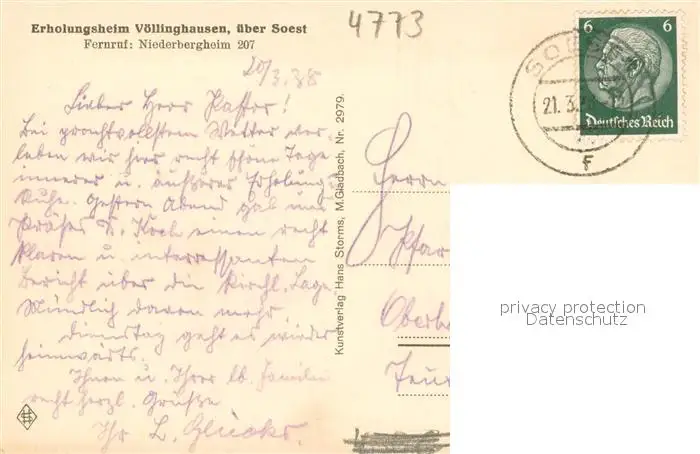 Erholungsheim Völlinghausen, über Soest
Fernruf: Niederbergheim 207
4773
20/3.38
Lieber Herr Pastor!
Bei prachtvollstem Wetter ver-
leben wir hier recht schöne Tage
innerer u. äußerer Erholung
Ruhe. Gestern Abend gab uns
Präses D. Koch einen recht
klaren u. interessanten
Bericht über die kirchl. Lage.
Mündlich davon mehr.
Dienstag geht es wieder
heimwärts.
Ihnen u. Ihrer lb. Familie
recht herzl. Grüße
Ihr L.
Kunstverlag Hans Storms, M.Gladbach, Nr. 2979.
6 6
Deutsches Reich
21.3.
F
Herrn
Pfar
Oberh
privacy protection
Datenschutz